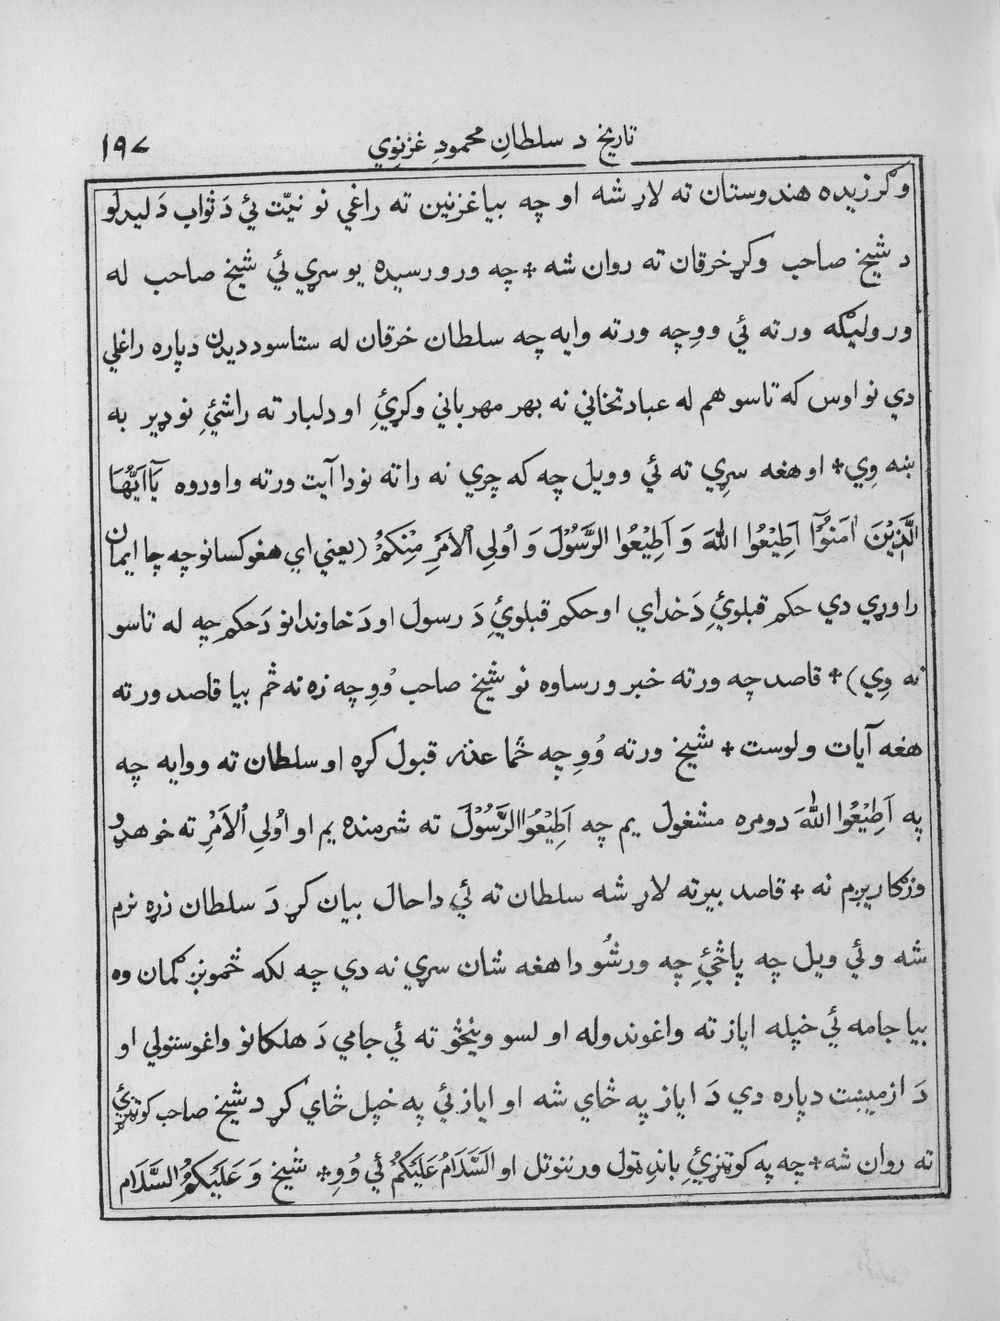 تاریخ د سلطانِ محمودِ غزنوِي ١٩٧
وګرزیده هندوستان ته لاړ شه او چه بیا غزنین ته راغي نو نیّت ئي دَ ثواب دَ لیدلو
د شیخ صاحب وکړ خرقان ته روان شه + چه ورورسیده یو سړي ئي شیخ صاحب له
ورولیګه ورته ئي ووِ چه ورته وایه چه سلطان خرقان له ستاسو د دیدن دپاره راغلي
دي نو اوس که تاسو هم له عبادتخاني نه بهر مهرباني وکړئِ او دلبار ته راشئِ نو ډیر به
ښه وِي + او هغه سړِي ته ئي وویل چه که چري نه راته نو دا آیت ورته واوروه یَآ اَیُّهَا
الَّذِیْنَ اٰمَنُوْۤا اَطِیْعُوا اللّٰهَ وَ اَطِیْعُوا الرَّسُوْلَ وَ اُولِی اْلاَمْرِ مِنْکُمْ (یعني اي هغو کسانو چه چا ایمان
راوړي دي حکم قبلوئِ دَ خداي او حکم قبلوئِ دَ رسول او دَ خاوندانو دَ حکم چه له تاسو
نه وِي) + قاصد چه ورته خبر ورساوه نو شیخ صاحب وُوِ چه زه نه ځم بیا قاصد ورته
هغه آیات ولوست + شیخ ورته وُوِ چه ځما عذر قبول کړه او سلطان ته ووایه چه
په اَطِیْعُوا اللّٰهَ دومره مشغول یم چه اَطِیْعُوا الرَّسُوْلَ ته شرمنده یم او اُولیِ اْلاَمْرِ ته خو هډو
وزګاریږم نه + قاصد بیرته لاړ شه سلطان ته ئي دا حال بیان کړ دَ سلطان زړه نرم
شه وئي ویل چه پاڅئِ چه ورشُو دا هغه شان سړي نه دي چه لکه ځمونږ ګمان وه
بیا جامه ئي خپله ایاز ته واغوندوله او لسو وینځو ته ئي جامي دَ هلکانو واغوستولي او
دَ ازمیښت دپاره دي دَ ایاز په ځاي شه او ایاز ئي په خپل ځاي کړ د شیخ صاحب کوټړئِ
ته روان شه + چه په کوټړئِ باندِ ټول ورننوتل او اَلسَّلَامُ عَلَیْکُمْ ئي وُوِ + شیخ وَ عَلَیْکُمُ السَّلَام